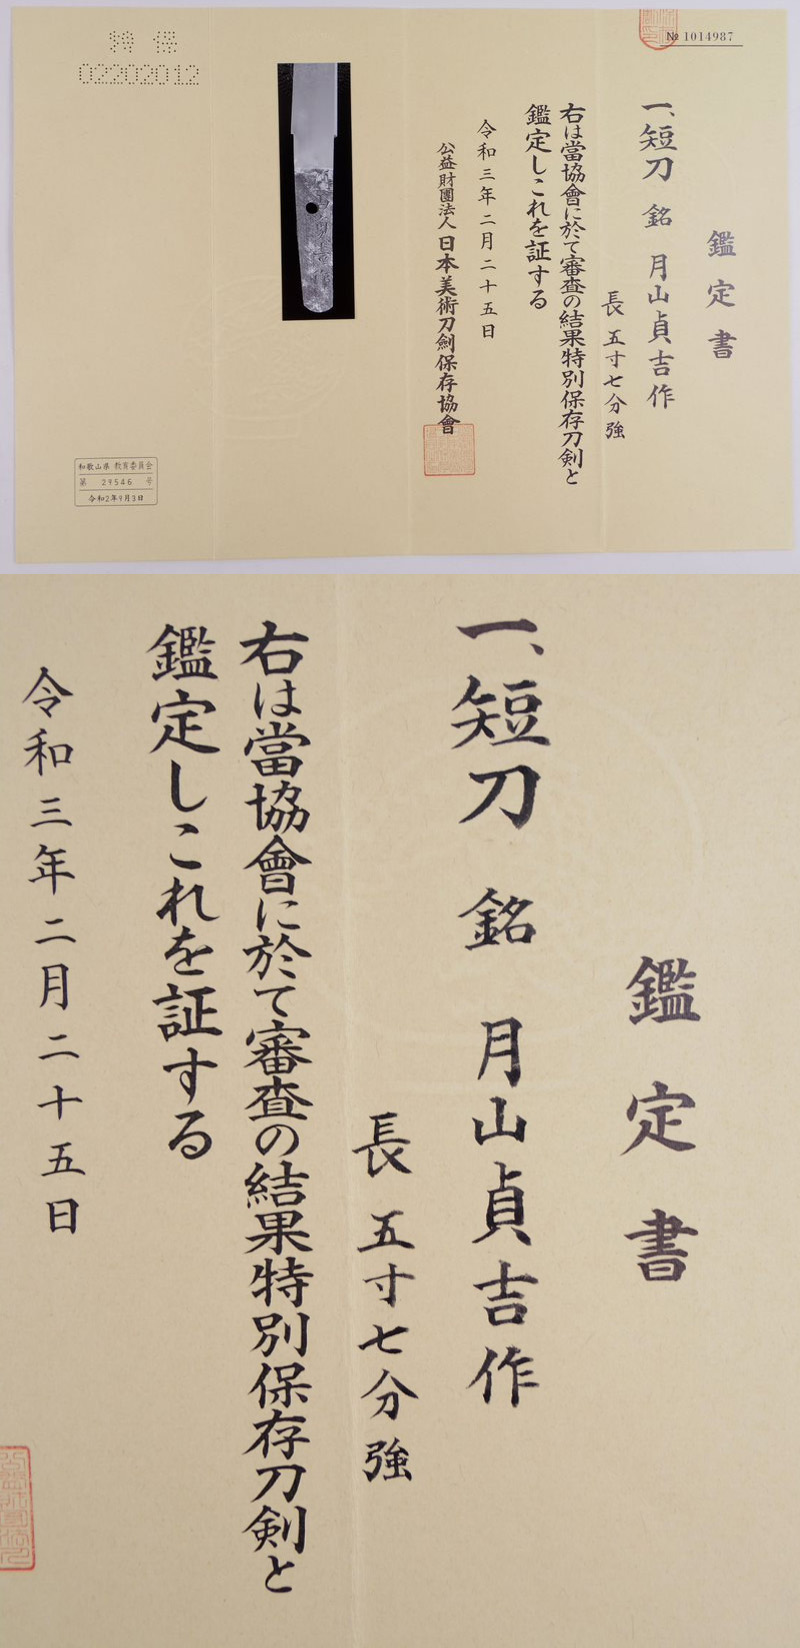 № 1014987
鑑定書
一、短刀 銘 月山貞吉作
長 五寸七分強
右は當協會に於て審査の結果特別保存刀剣と
鑑定しこれを証する
令和三年二月二十五日
公益財團法人 日本美術刀劍保存協會
特保
02202012
和歌山県 教育委員会
第 29546 号
令和2年9月3日
鑑定書
一、短刀 銘 月山貞吉作
長 五寸七分強
右は當協會に於て審査の結果特別保存刀剣と
鑑定しこれを証する
令和三年二月二十五日